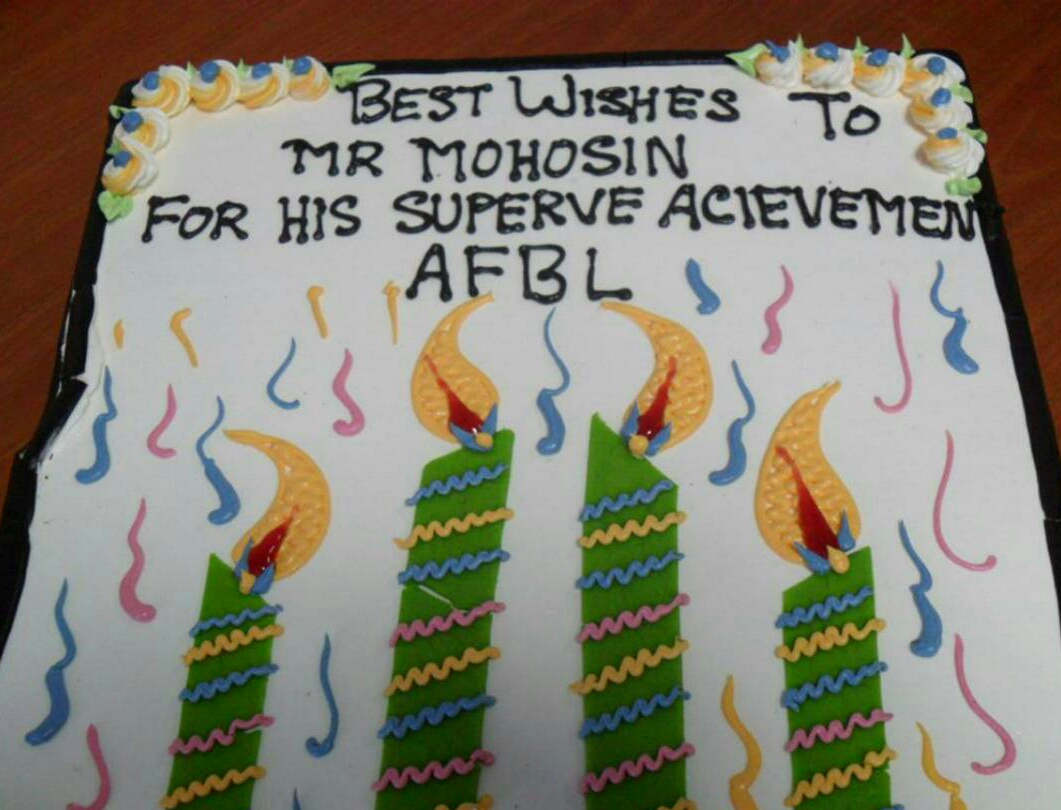 BEST WISHES TO
MR MOHOSIN
FOR HIS SUPERVE ACIEVEMEN
AFBL